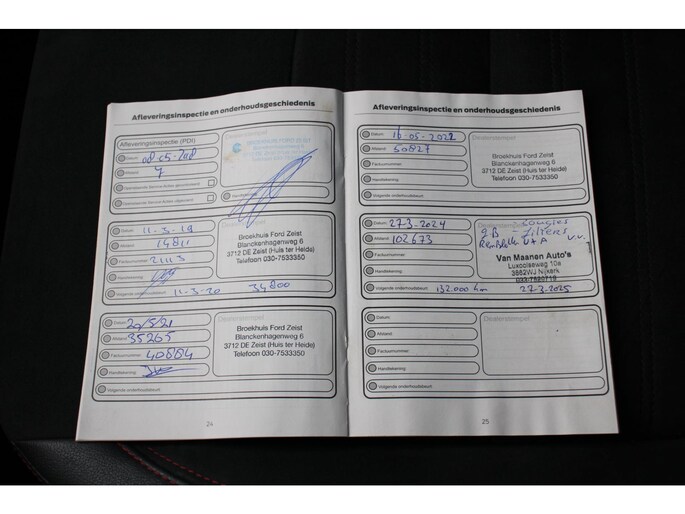 Afleveringsinspectie en onderhoudsgeschiedenis
Afleveringsinspectie (PDI)
Datum 08-05-2018
Afstand 7
Handtekening
Datum 11-3-19
Afstand 14811
Factuurnummer 21113
Handtekening
Volgende onderhoudsbeurt 11-3-20 34800
Broekhuis Ford Zeist
Blanckenhagenweg 6
3712 DE Zeist (Huis ter Heide)
Telefoon 030-7533350
Datum 20/5/21
Afstand 35265
Factuurnummer 40884
Handtekening
Volgende onderhoudsbeurt
Dealerstempel
Broekhuis Ford Zeist
Blanckenhagenweg 6
3712 DE Zeist (Huis ter Heide)
Telefoon 030-7533350
24
Afleveringsinspectie en onderhoudsgeschiedenis
Datum 16-05-2022
Afstand 50827
Factuurnummer
Handtekening
Volgende onderhoudsbeurt
Dealerstempel
Broekhuis Ford Zeist
Blanckenhagenweg 6
3712 DE Zeist (Huis ter Heide)
Telefoon 030-7533350
Datum 27-3-2024
Afstand 102673
Factuurnummer
Handtekening
Volgende onderhoudsbeurt 132.000 km 27-3-2025
GB - Filters
V+A v.v.
Van Maanen Auto's
Luxoolseweg 10a
3862WJ Nijkerk
Datum
Afstand
Factuurnummer
Handtekening
Volgende onderhoudsbeurt
Dealerstempel
25